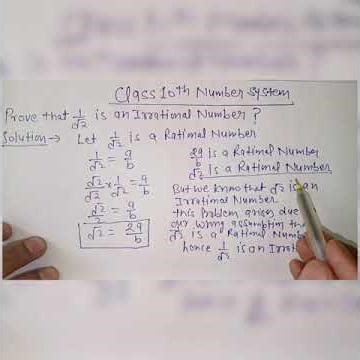 Class 10th Number System
Prove that 1/√2 is an Irrational Number ?
Solution → Let 1/√2 is a Rational Number
1/√2 = a/b
√2/√2 × 1/√2 = a/b
√2/2 = a/b
√2 = 2a/b
2a/b is a Rational Number
√2 is a Rational Number
But we know that √2 is an
Irrational Number
This Problem arises due
our wrong assumption tha
1/√2 is a Rational Numb
hence 1/√2 is an Irrat